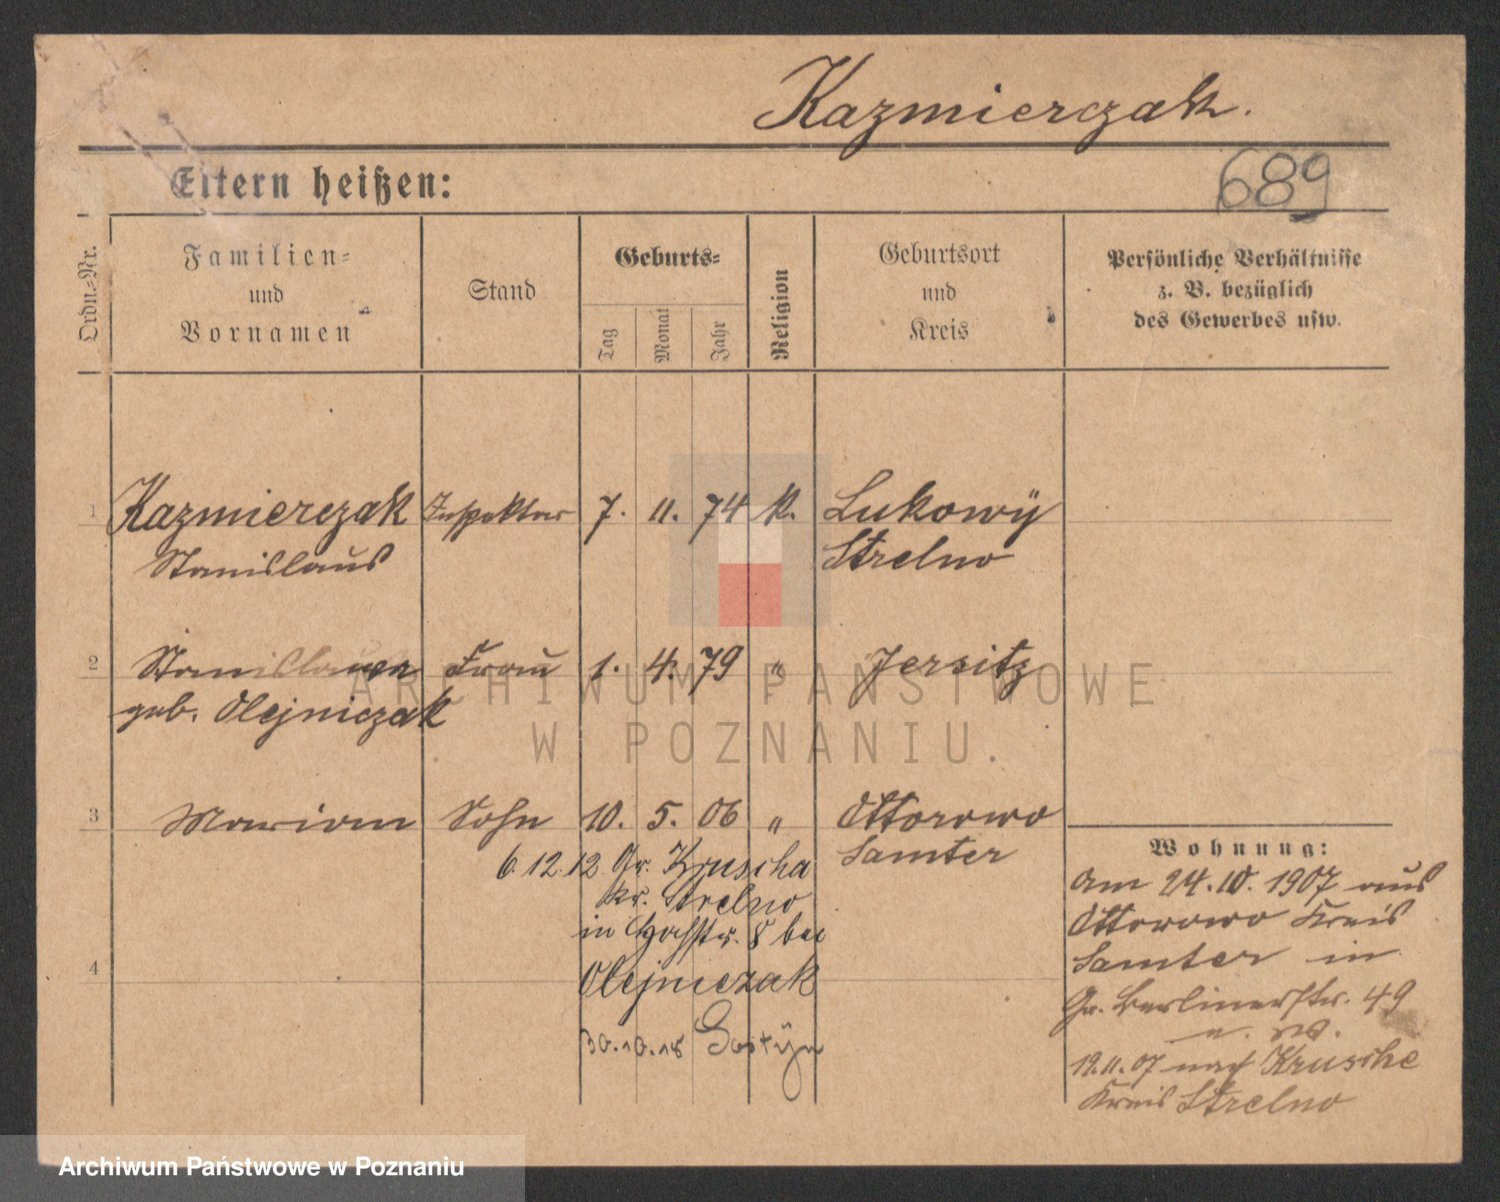 Kazmierczak.
689
Eltern heißen:
Ordn.-Nr.
Familien-
und
Vornamen
Stand
Geburts-
Tag
Monat
Jahr
Religion
Geburtsort
und
Kreis
Persönliche Verhältnisse
z. B. bezüglich
des Gewerbes usw.
1 Kazmierczak Inspektor 7. 11. 74 k. Lukowÿ
Stanislaus Strelno
2 Stanislawa Frau 1. 4. 79 " Jersitz
geb. Olejniczak
3 Marian Sohn 10. 5. 06 " Ottorowo
Samter
6.12.12. Gr. Kruscha
Kr. Strelno
in Hochstr. 8 bei
4 Olejniczak
30.10.18 Gostÿn
Wohnung:
Am 24.10.1907 aus
Ottorowo Kreis
Samter in
Gr. Berlinerstr. 49
19.11.07 nach Krusche
Kreis Strelno
ARCHIWUM PAŃSTWOWE
W POZNANIU.
Archiwum Państwowe w Poznaniu